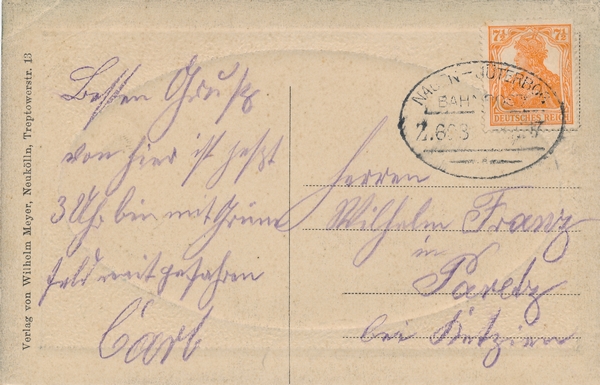 Verlag von Wilhelm Meyer, Neukölln, Treptowerstr. 13
Besten Gruß.
von hier ist jetzt
3 Uhr bin mit Grune
feld mit gefahren
Carl
NAUEN-JÜTERBOG
BAHNPOST
Z.693
7½ 7½
DEUTSCHES REICH
Herren
Wilhelm Franz
in
Paretz
bei Ketzin